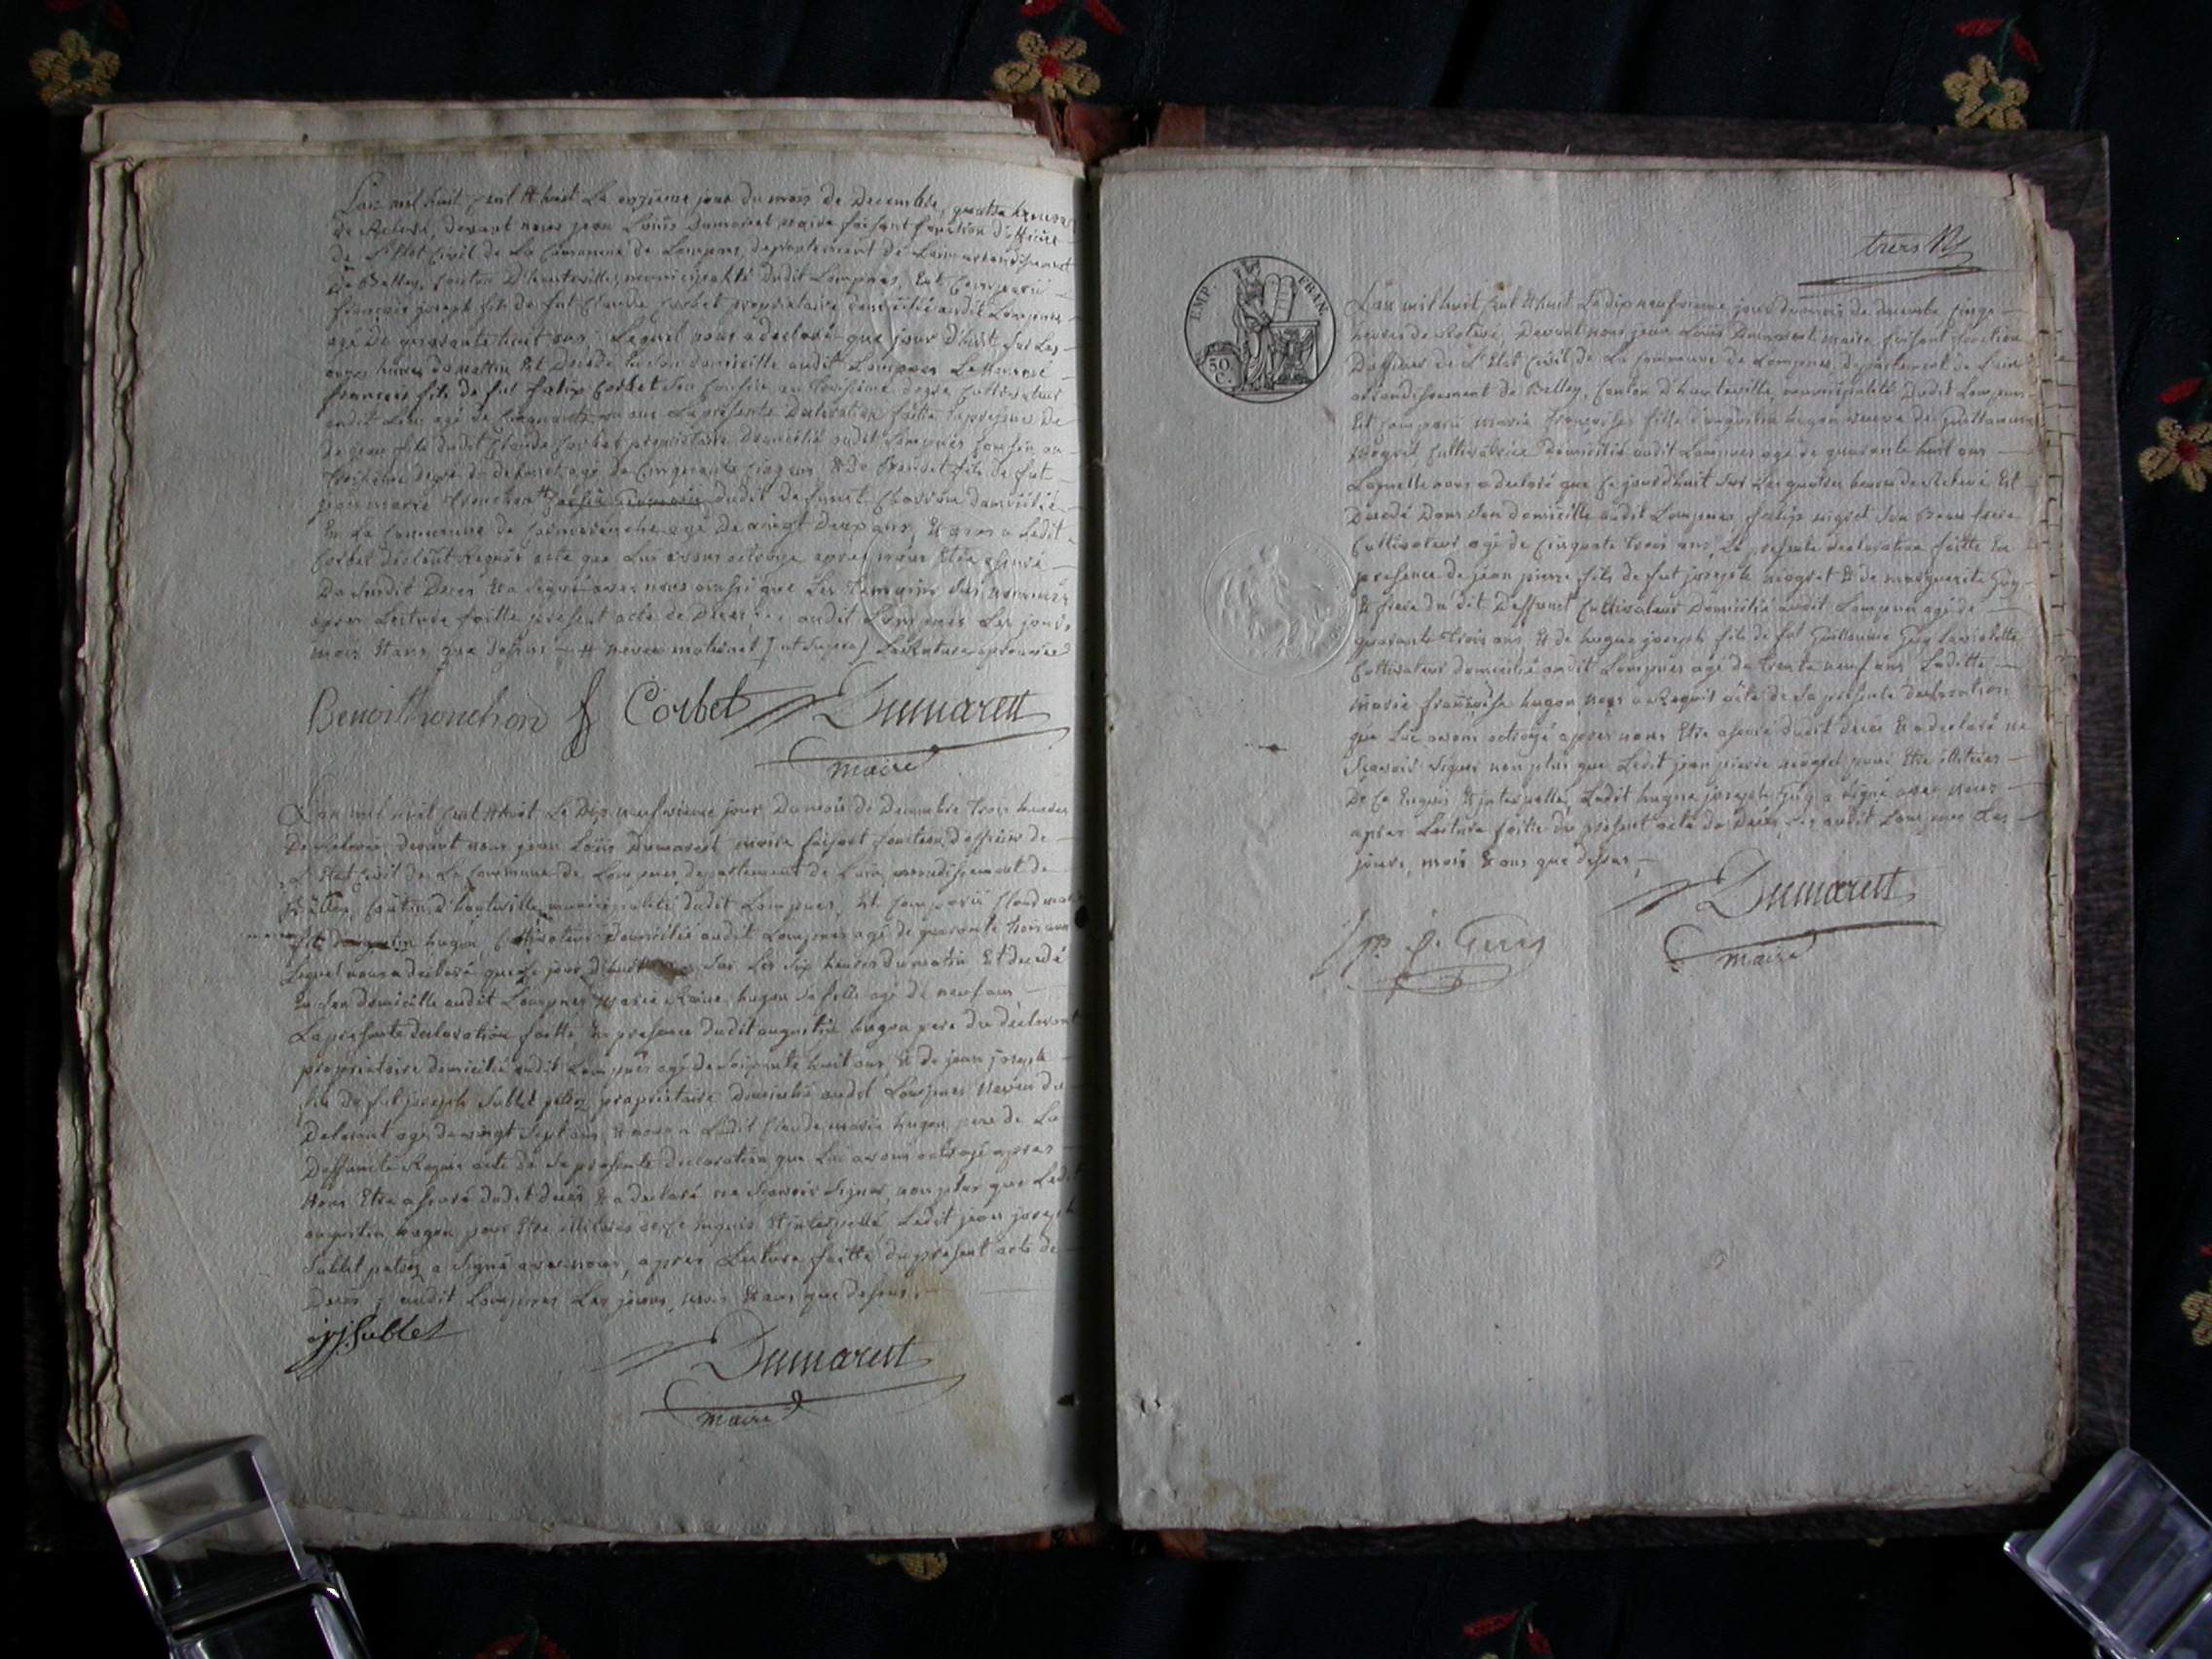 L'an mil huit cent & huit Le onzieme jour du mois de Decembre, quatre heures
de Relevé, devant nous jean Loüis Dumarest maire faisant fonction d'officier
de L'Etat Civil de La Commune de Lompnes, departement de Lain arrondissement
De Belley, Canton D'hauteville, municipalité dudit Lompnes, Est Comparu
françois joseph fils de fut Claude Corbet propriétaire domicilié audit Lompnes
agé De quarante huit ans, Lequel nous a declaré que ce jour d'huit sur Les
onze heures du matin Est Decedé En son domicille audit Lompnes Le nommé
françois fils de fut Corbet son Cousin au troisieme degré Cultivateur
audit Lieu agé de Cinquante ans La presente Declaration faitte En presence De
De jean fils dudit Claude Corbet propriétaire domicilié audit Lompnes Cousin au
troisieme degré du defunct, agé de Cinquante Cinq ans & De Benoit fils de fut
marie tronchon dudit defunct domicilié
En La Commune de agé De vingt Deux ans, & nous a Ledit
Corbet declarant Requis acte que Lui avons octroyé apres nous Etre assuré
Du Susdit Deces & a Signé avec nous ainsi que Les temoins Sus nommés
apres Lecture faitte present acte de Deces audit Lompnes Les jours,
mois & ans que dessus # neveu maternel
Benoit tronchon Corbet Dumarest
maire
L'an mil huit cent & huit Le Dix neufvieme jour Du mois de Decembre trois heures
De Relevé, devant nous jean Loüis Dumarest maire faisant fonction d'officier de
L'Etat Civil de La Commune de Lompnes departement de Lain, arrondissement de
Belley, Canton d'hauteville, municipalité dudit Lompnes, Est Comparu Claude marie
fils d'augustin hugon Cultivateur Domicilié audit Lompnes agé de quarante trois ans
Lequel nous a declaré que Ce jour d'huit Sur Les Six heures du matin Est decedé
En Son domicille audit Lompnes, marie hugon Sa fille agé de neuf ans,
La presente declaration faitte En presence dudit augustin hugon pere du declarant
propriétaire domicilié audit Lompnes agé de huit ans, & de jean joseph
fils de fut joseph Sublet propriétaire Domicilié audit Lompnes Neveu du
Delarant agé de vingt Sept ans & nous a Ledit Claude marie hugon, pere de La
Deffuncte Requis acte de Sa presente declaration que Lui avons octroyé apres
Nous Etre assuré dudit deces & a declaré ne Scavoir Signer, non plus que Ledit
augustin hugon pour Etre illitérés de Ce Enquis & interpellé, Ledit jean joseph
Sublet a Signé avec nous, apres Lecture faitte du present acte de
Deces, audit Lompnes Les jours, mois & ans que dessus.
jjSublet
Dumarest
maire
EMP. FRAN.
50 C.
L'an mil huit Cent & huit Le dix neufvieme jour du mois de decembre Cinqs
heures de Relevé, Devant nous jean Loüis Dumarest maire faisant fonction
D'officier de L'Etat Civil de La Commune de Lompnes, departement de Lain
arrondissement de Belley, Canton d'hauteville, municipalité Dudit Lompnes
Est Comparu marie françoise fille d'augustin hugon veuve de Guillaume
Cultivatrice Domicilié audit Lompnes agé de quarante huit ans
Laquelle nous a declaré que Ce jour d'huit Sur Les quatres heures de Relevé Est
Decedé Dans Son domicille audit Lompnes, Son Beau frere
Cultivateur agé de Cinquate trois ans, La presente declaration faitte En
presence de jean pierre fils de fut joseph & de marguerite Guy
& frere du dit Deffunct Cultivateur Domicilié audit Lompnes agé de
quarante trois ans, & de hugue joseph fils de fut Guillaume Guy
Cultivateur domicilié audit Lompnes agé de trente neuf ans Laditte
marie françoise hugon nous a Requis acte de Sa presente declaration
que Lui avons octroyé apres nous Etre assuré dudit deces & a declaré ne
Scavoir Signer non plus que Ledit jean pierre pour Etre illitérés
De Ce Enquis & interpellé, Ledit hugue joseph Guy a Signé avec nous
apres Lecture faitte du present acte de Deces, audit Lompnes Les
jours, mois & ans que dessus,
Dumarest
maire